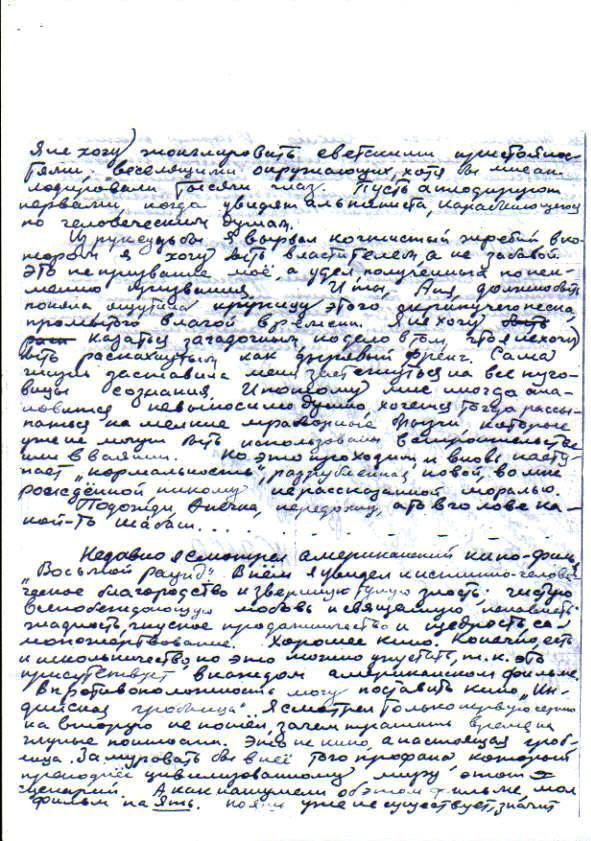 Я не хочу жонглировать светскими пристойнос-
тями, веселящими окружающих, хотя бы мне ап-
лодировали тысячи глаз. Пусть аплодируют
нервами когда увидят альпиниста, карабкающегося
по человеческим душам.
Из рук судьбы я вырвал когтистый жребий в ко-
тором я хочу быть властителем, а не забавой
Это не призвание моё, а удел полученный
призвания. И ты, Аня, должно быть
поняла ощутила этого песка,
промытого влагой времени. Я не хочу
казаться загадочным, но дело в том, что я не хочу
быть распахнутым как дешёвый френч. Сама
жизнь заставила меня застегнуться на все пуго-
вицы сознания. И потому мне иногда ста-
новится невыносимо душно, хочется тогда рассы-
паться на мелкие мраморные брызги, которые
уже не могут быть использованы в строительстве
или в ваянии. Но это проходит и вновь насту-
пает „нормальность", новой, во мне
рождённой никому не рассказанной моралью.
Подожди, Анечка, передохну, а то в голове ка-
кой-то шабаш....
Недавно я смотрел американский кино-фильм
„Восьмой рация". В нём я увидел и истинно-челове-
ческое благородство и зверинную тупую злость; чистую
всепобеждающую любовь и священную ненависть
жадность, гнусное предательство и щедрость, са-
мопожертвование. Хорошее кино. Конечно, есть
и школьничество, но это можно упустить, т.к. это
присутствует в каждом американском фильме.
В противоположность могу поставить кино „Ин-
дийская гробница". Я смотрел только первую серию
на вторую не пошёл, зачем тратить время на
глупые пошлости. Это не кино, а настоящая гроб-
ница. Замуровать бы в неё того профана, который
преподнёс цивилизованному миру, этот
сценарий. А как нашумели об этом фильме, мол
фильм на ять. но ять уже не существует, значит